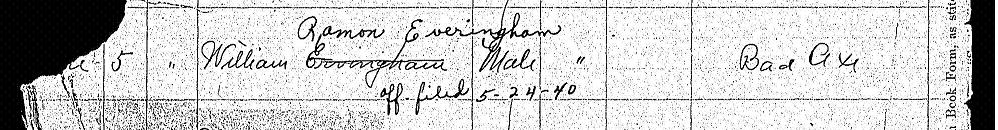 Ramon Everingham
5 " William Ervingham Male " Bad Axe
aff. filed 5-24-40
Book Form, as